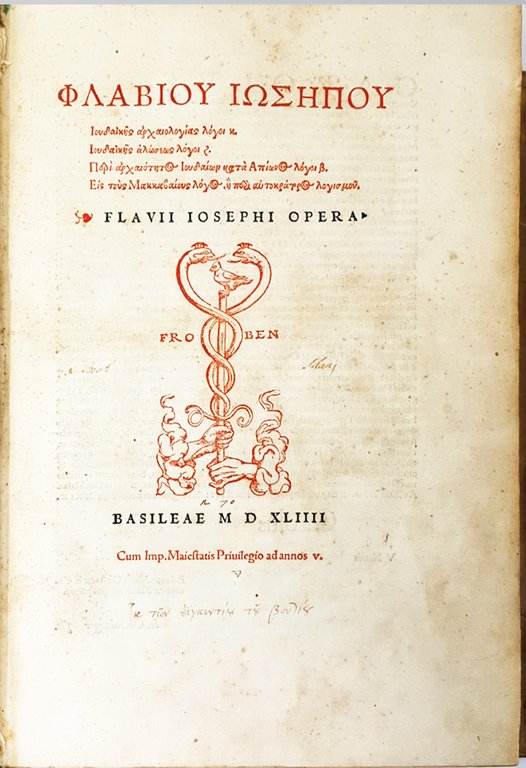 ΦΛΑΒΙΟΥ ΙΩΣΗΠΟΥ
Ιουδαϊκῆς ἀρχαιολογίας λόγοι κ.
Ιουδαϊκῆς ἁλώσεως λόγοι ζ.
Περὶ ἀρχαιότητος Ιουδαίων κατὰ Απίωνος λόγοι β.
Εἰς τοὺς Μακκαβαίους λόγος, ἢ περὶ αὐτοκράτορος λογισμοῦ.
FLAVII IOSEPHI OPERA
FRO BEN
BASILEAE M D XLIIII
Cum Imp. Maiestatis Priuilegio ad annos v.